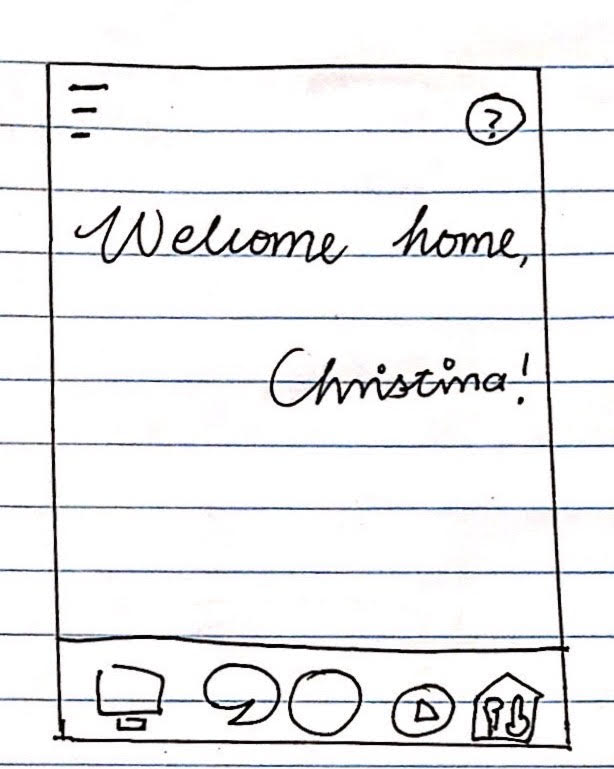 ?
Welcome home,
Christina!